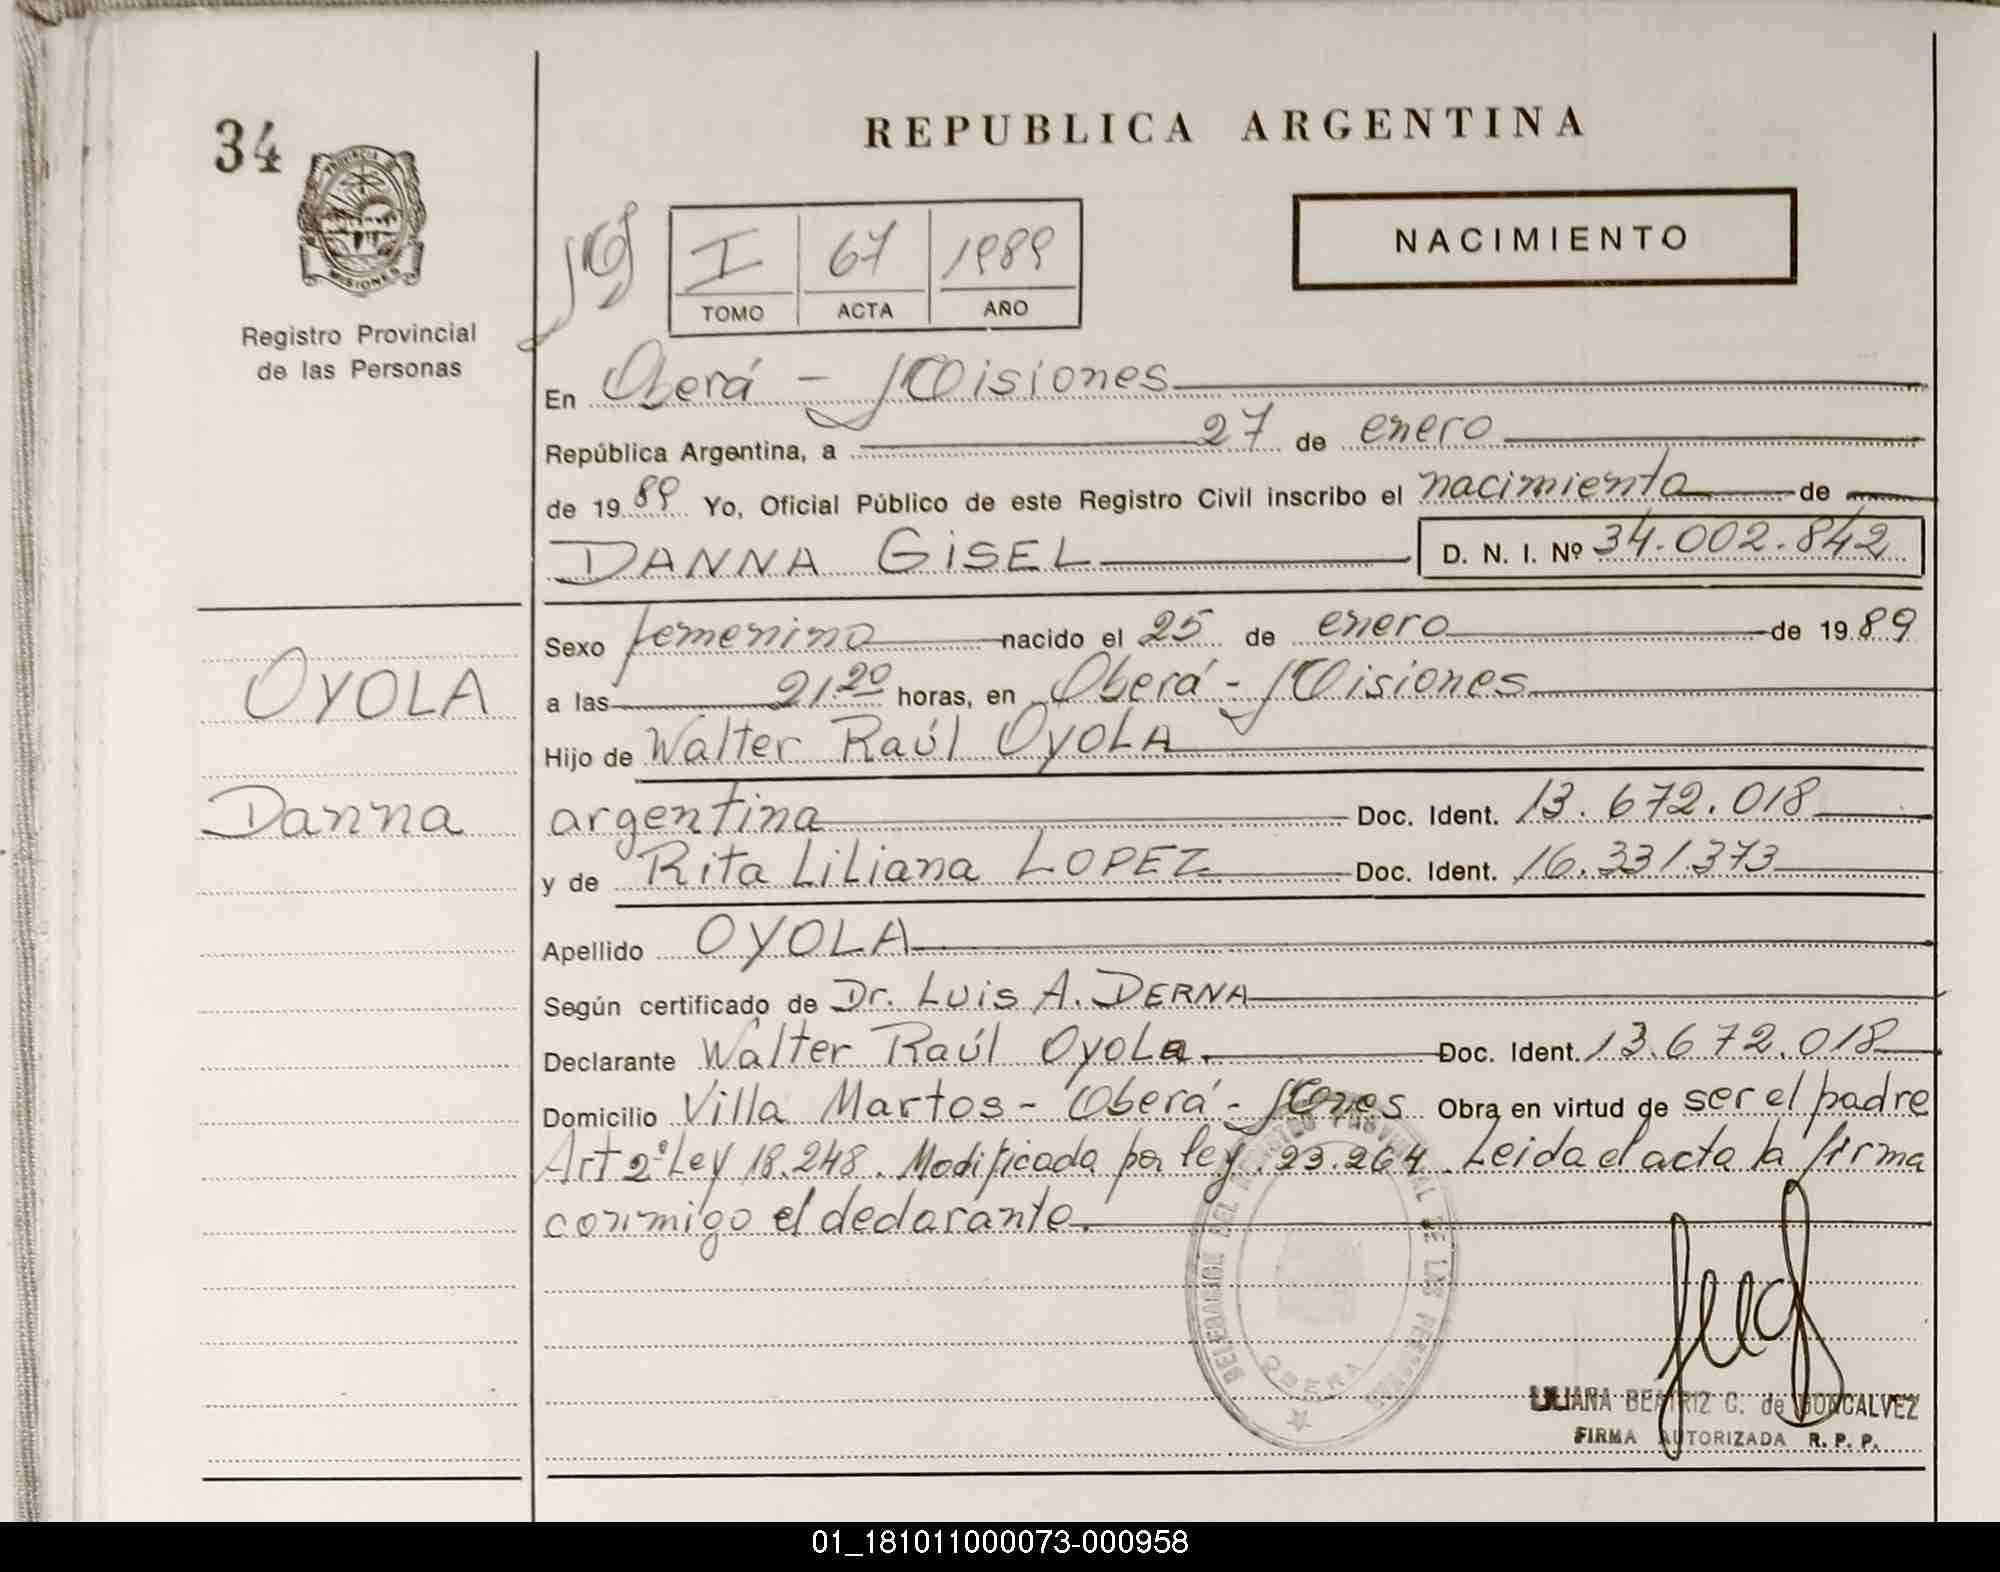 34
PROVINCIA DE
MISIONES
Registro Provincial
de las Personas
OYOLA
Danna
REPUBLICA ARGENTINA
NACIMIENTO
I 67 1989
TOMO ACTA AÑO
En Oberá - Misiones
República Argentina, a 27 de enero
de 1989 Yo, Oficial Público de este Registro Civil inscribo el nacimiento de
DANNA GISEL D. N. I. Nº 34.002.842
Sexo femenino nacido el 25 de enero de 1989
a las 21.20 horas, en Oberá - Misiones
Hijo de Walter Raúl OyOLA
argentina Doc. Ident. 13.672.018
y de Rita Liliana LOPEZ Doc. Ident. 16.331.373
Apellido OYOLA
Según certificado de Dr. Luis A. DERNA
Declarante Walter Raúl Oyola. Doc. Ident. 13.672.018
Domicilio Villa Martos - Oberá - Mnes Obra en virtud de ser el padre
Art 2º Ley 18.248. Modificada por ley 23.264. Leida el acta la firma
conmigo el declarante.
DELEGACION DEL REGISTRO PROVINCIAL DE LAS PERSONAS
OBERA
LILIANA BEATRIZ C. de GONCALVEZ
FIRMA AUTORIZADA R. P. P.
01_181011000073-000958